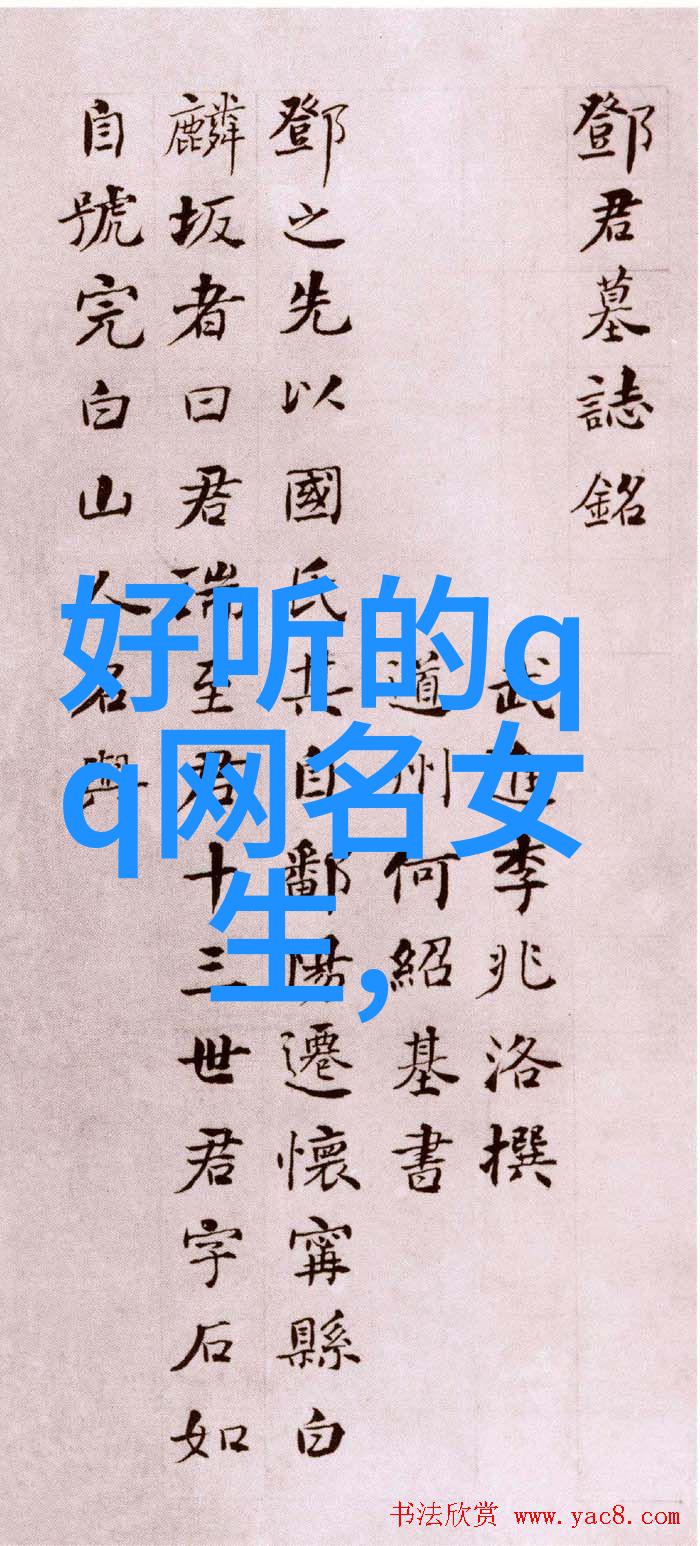 鄧君墓誌銘
武進李兆洛撰
道州何紹基書
鄧之先以國氏其自鄱陽遷懷甯縣白
麟坂者曰君瑞至君十三世君字石如
自號完白山人名與
好听的q
q网名女
生,
书法欣赏 www.yac8.com